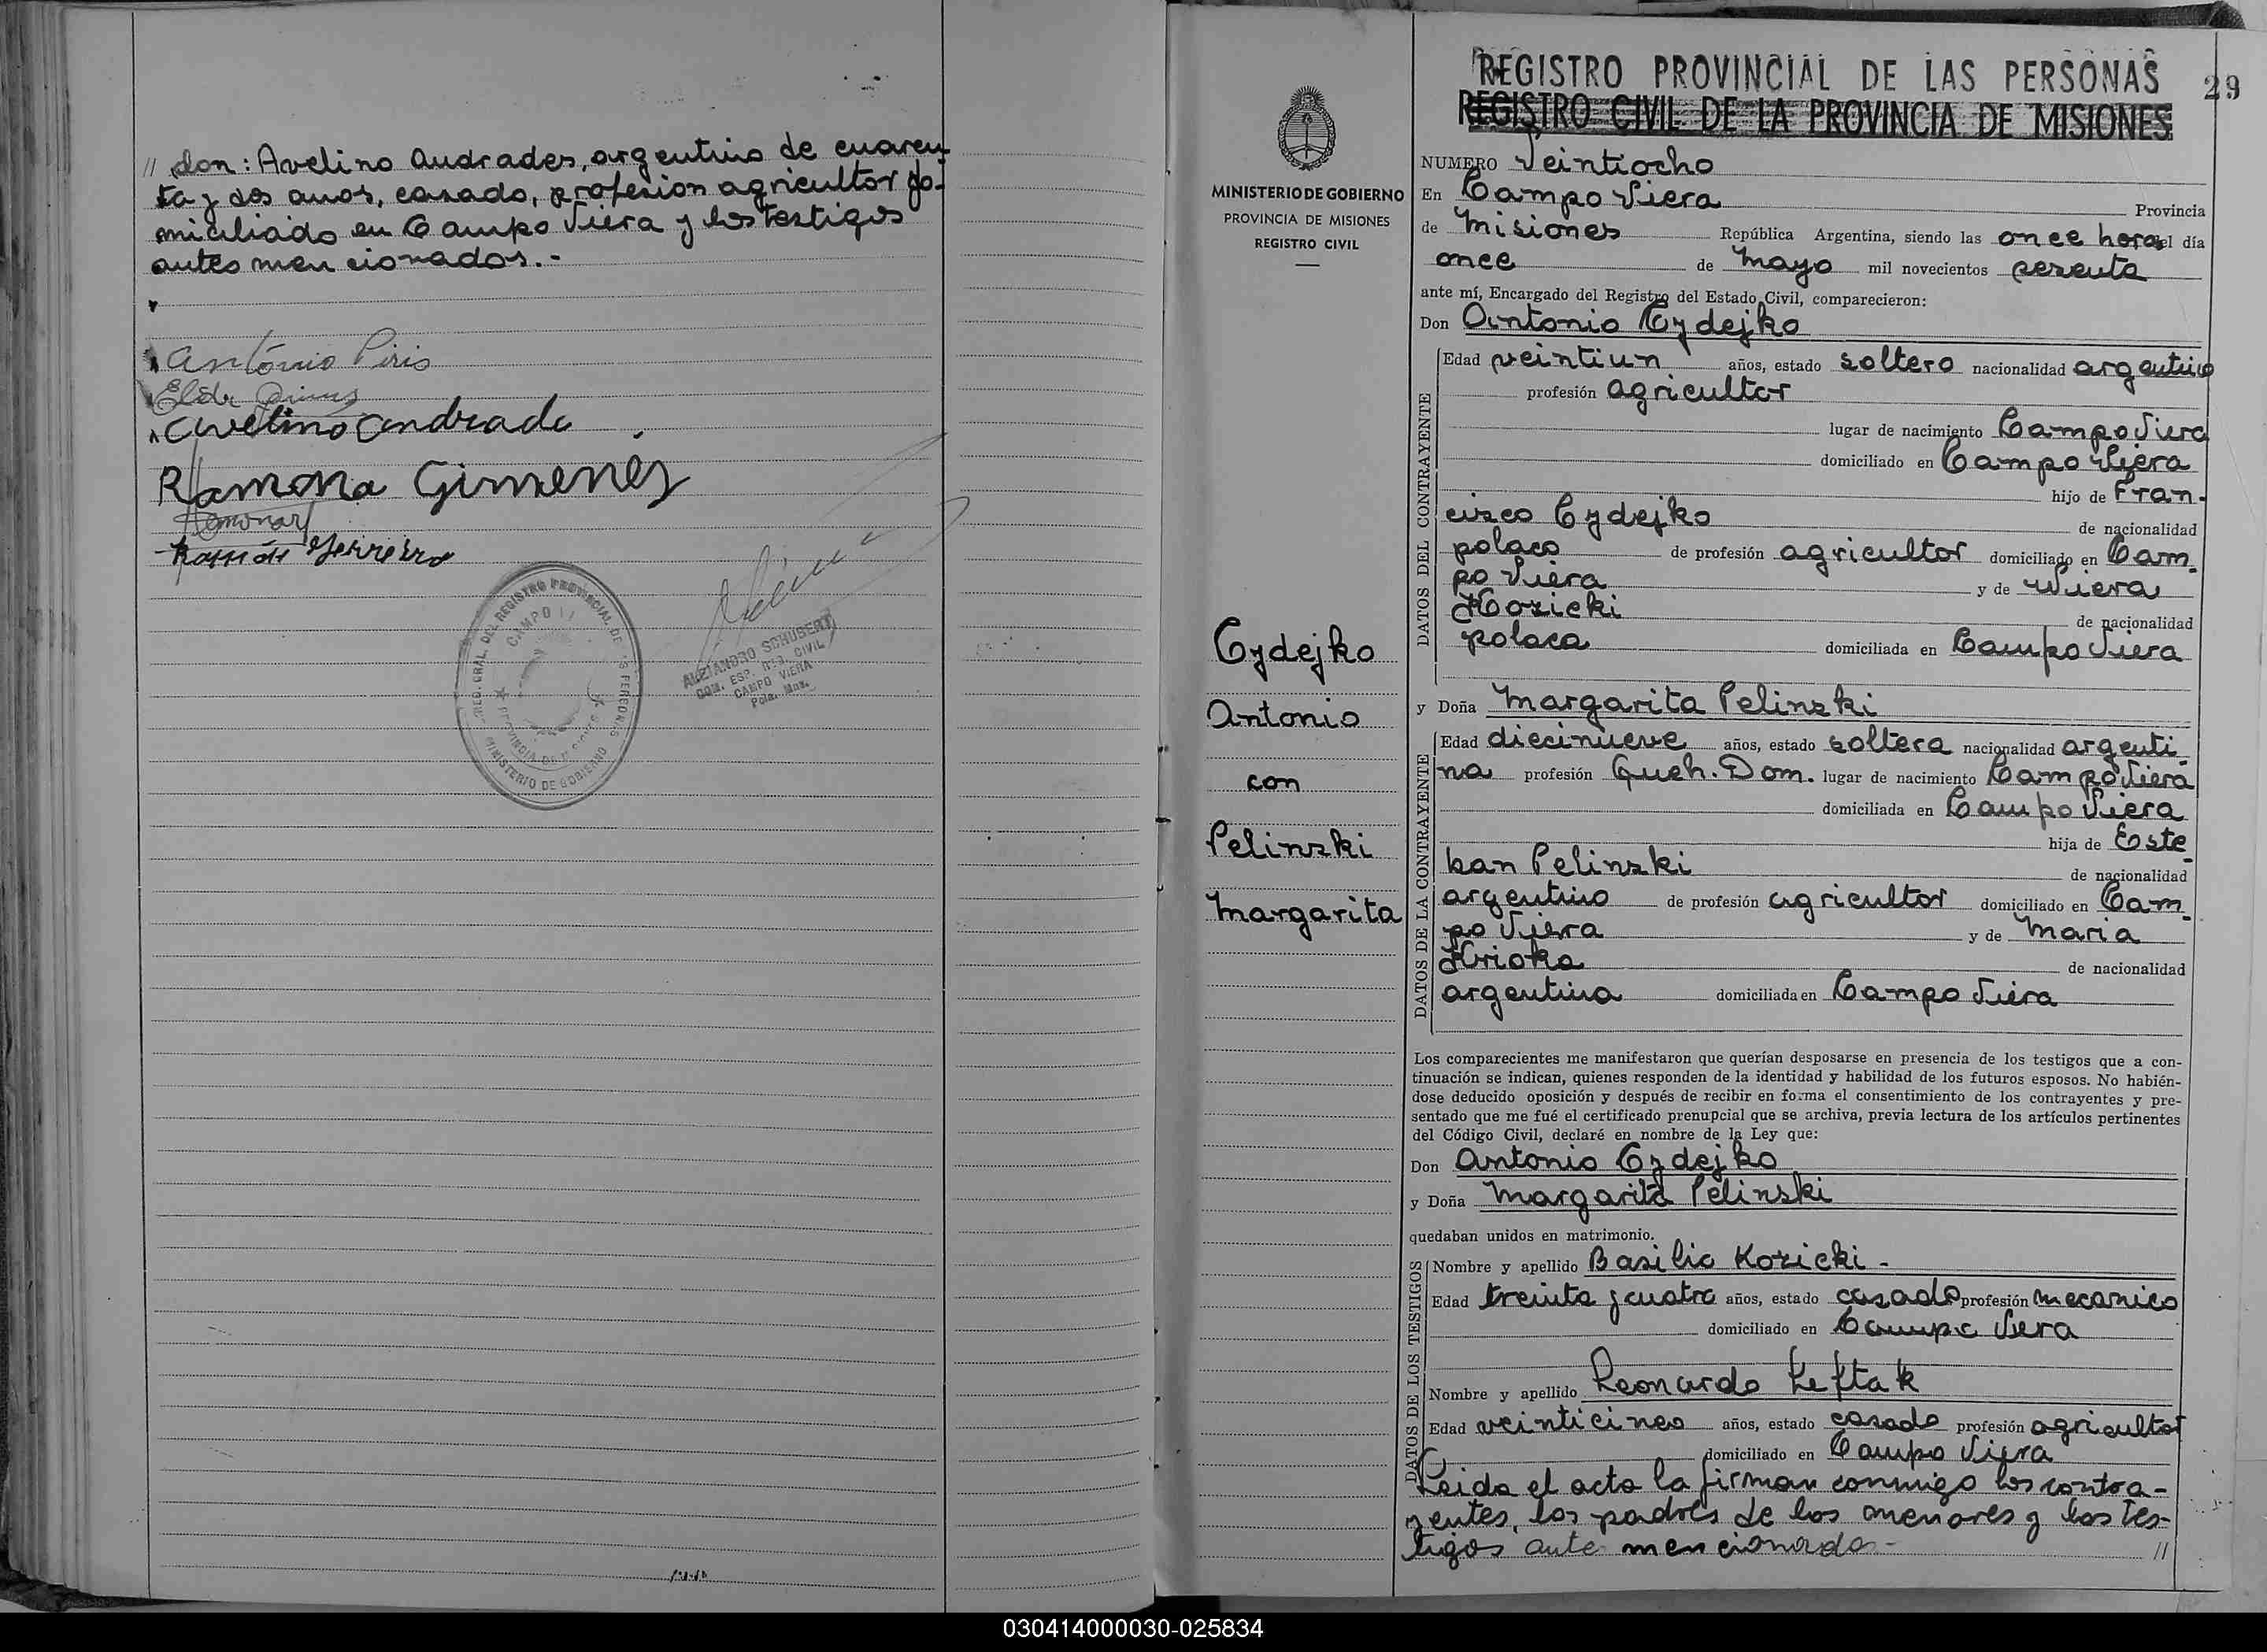 // don: Avelino Andrades, argentino de cuaren-
ta y dos anos, casado, profesion agricultor do-
miciliado en Campo Viera y los testigos
antes mencionados.-
Antonio Piris
Avelino Andrade
Ramona Gimenes
Ramón Ferreira
REG. GRAL. DEL REGISTRO PROVINCIAL DE LAS PERSONAS
CAMPO
PROVINCIA DE MISIONES
MINISTERIO DE GOBIERNO
ALEJANDRO SCHUBERT
COM. ESP. REG. CIVIL
CAMPO VIERA
Pcia. Mns.
29
REGISTRO PROVINCIAL DE LAS PERSONAS
REGISTRO CIVIL DE LA PROVINCIA DE MISIONES
MINISTERIO DE GOBIERNO
PROVINCIA DE MISIONES
REGISTRO CIVIL
Cydejko
Antonio
con
Pelinski
Margarita
NUMERO Veintiocho
En Campo Viera Provincia
de Misiones República Argentina, siendo las once horas del día
once de Mayo mil novecientos sesenta
ante mí, Encargado del Registro del Estado Civil, comparecieron:
Don Antonio Cydejko
DATOS DEL CONTRAYENTE
Edad veintiun años, estado soltero nacionalidad argentino
profesión agricultor
lugar de nacimiento Campo Viera
domiciliado en Campo Viera
hijo de Fran-
cisco Cydejko de nacionalidad
polaco de profesión agricultor domiciliado en Cam-
po Viera y de Wiera
Kozicki de nacionalidad
polaca domiciliada en Campo Viera
y Doña Margarita Pelinski
DATOS DE LA CONTRAYENTE
Edad diecinueve años, estado soltera nacionalidad argenti-
na profesión Queh. Dom. lugar de nacimiento Campo Viera
domiciliada en Campo Viera
hija de Este-
ban Pelinski de nacionalidad
argentino de profesión agricultor domiciliado en Cam-
po Viera y de Maria
Krioka de nacionalidad
argentina domiciliada en Campo Viera
Los comparecientes me manifestaron que querían desposarse en presencia de los testigos que a con-
tinuación se indican, quienes responden de la identidad y habilidad de los futuros esposos. No habién-
dose deducido oposición y después de recibir en forma el consentimiento de los contrayentes y pre-
sentado que me fué el certificado prenupcial que se archiva, previa lectura de los artículos pertinentes
del Código Civil, declaré en nombre de la Ley que:
Don Antonio Cydejko
y Doña Margarita Pelinski
quedaban unidos en matrimonio.
DATOS DE LOS TESTIGOS
Nombre y apellido Basilio Kozicki -
Edad treinta y cuatro años, estado casado profesión mecanico
domiciliado en Campo Viera
Nombre y apellido Leonardo Leftak
Edad veinticinco años, estado casado profesión agricultor
domiciliado en Campo Viera
Leida el acta la firman conmigo los contra-
yentes, los padres de los menores y los tes-
tigos ante mencionado- //
030414000030-025834